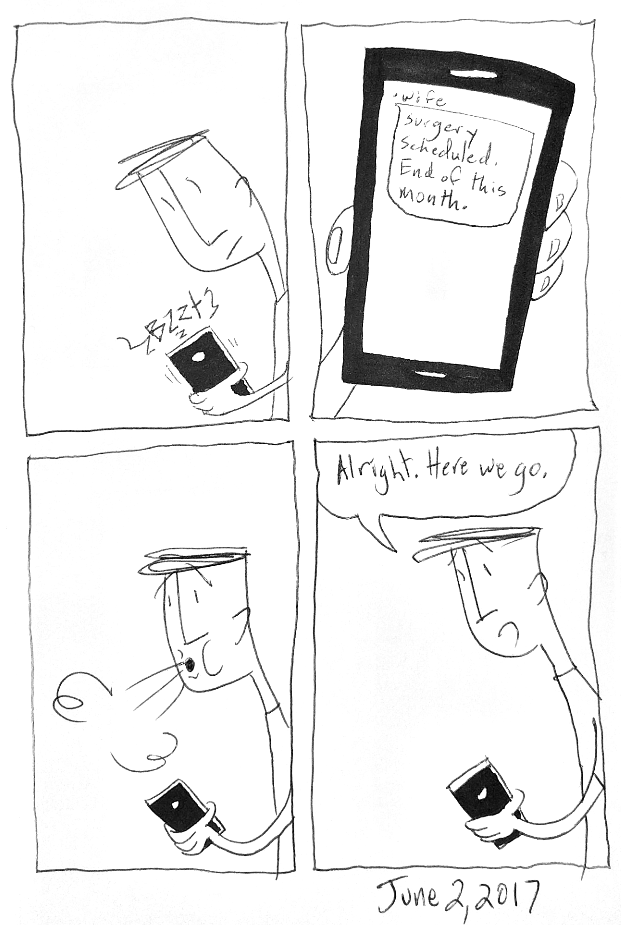 Bzzt
wife
surgery
scheduled.
End of this
month.
Alright. Here we go.
June 2, 2017